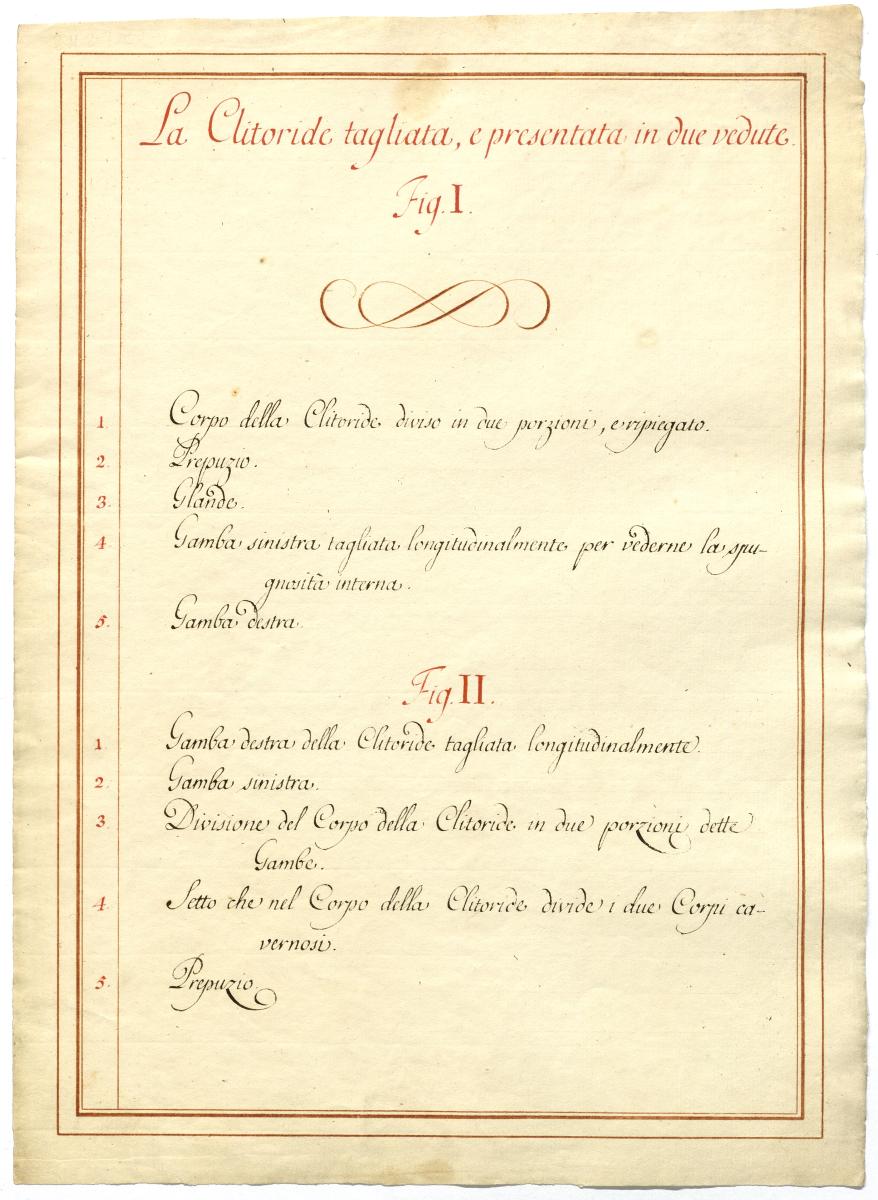 La Clitoride tagliata, e presentata in due vedute.
Fig. I.
1. Corpo della Clitoride diviso in due porzioni, e ripiegato.
2. Prepuzio.
3. Glande.
4. Gamba sinistra tagliata longitudinalmente per vederne la spu-
gnosità interna.
5. Gamba destra.
Fig. II.
1. Gamba destra della Clitoride tagliata longitudinalmente.
2. Gamba sinistra.
3. Divisione del Corpo della Clitoride in due porzioni dette
Gambe.
4. Setto che nel Corpo della Clitoride divide i due Corpi ca-
vernosi.
5. Prepuzio.